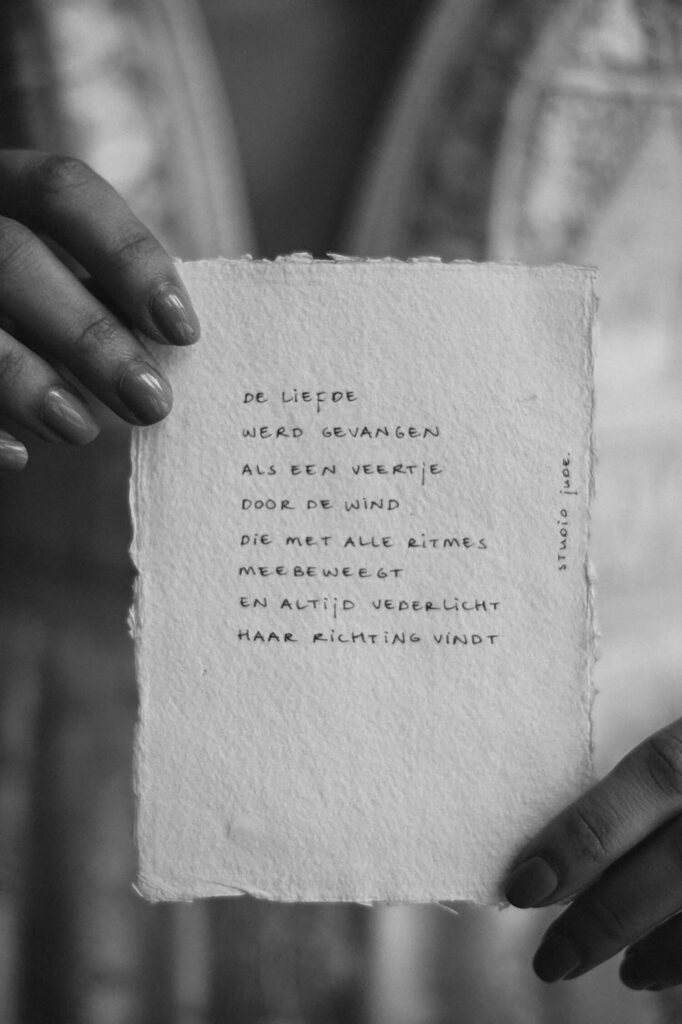 DE LIEFDE
WERD GEVANGEN
ALS EEN VEERTJE
DOOR DE WIND
DIE MET ALLE RITMES
MEEBEWEEGT
EN ALTIJD VEDERLICHT
HAAR RICHTING VINDT
STUDIO JUDE.